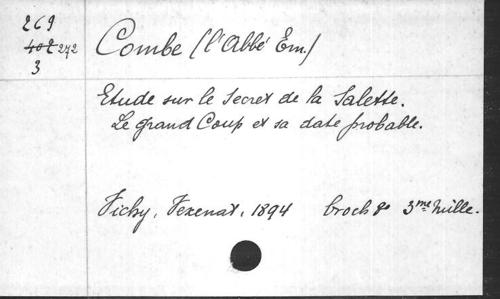 269
Combe (l'Abbé Em.)
402 272
3
Etude sur le Secret de la Salette.
Le grand Coup et sa date probable.
Vichy, Vexenat, 1894 broch 8º 3me mille.